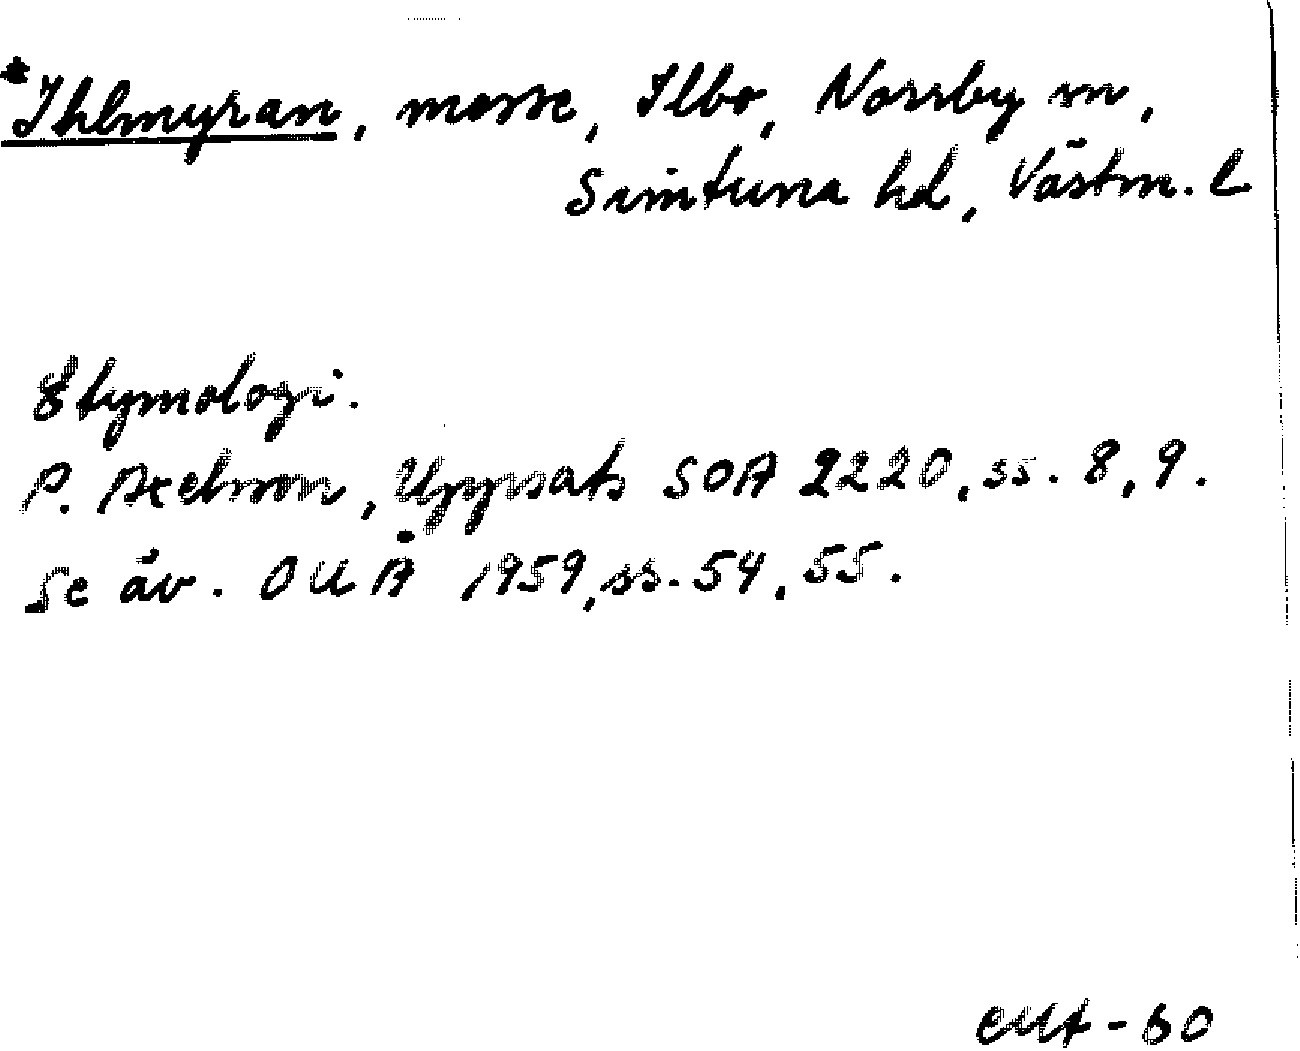 *Ihlmyran, mosse, Ilbo, Norrby sn,
Simtuna hd, Västm. l
Etymologi.
P. Axelson, Uppsats SOA 2220, ss. 8, 9.
Se äv. OUÅ 1959, ss. 54, 55.
-60